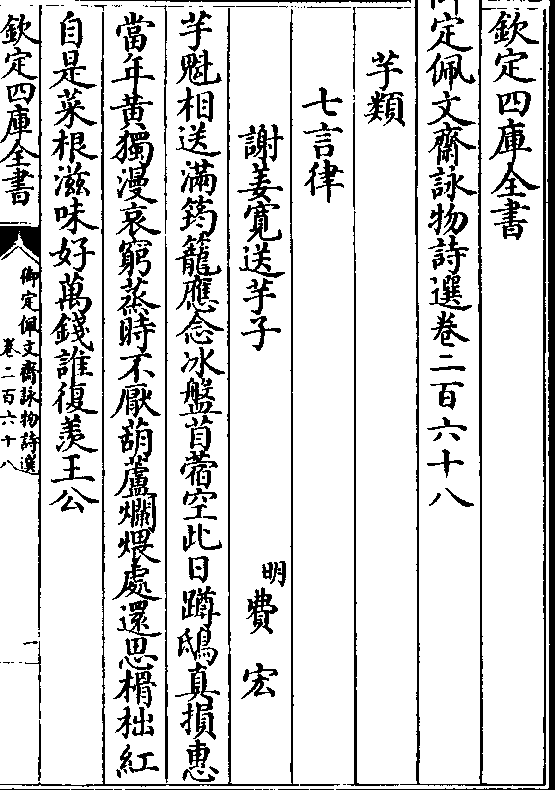 欽定四庫全書
御定佩文齋詠物詩選卷二百六十八
芋類
七言律
謝姜寛送芋子
明費宏
芋魁相送滿筠籠應念冰盤苜蓿空此日蹲鴟真損惠
當年黃獨漫哀窮蒸時不厭葫蘆爛煨處還思榾柮紅
自是菜根滋味好萬錢誰復羨王公
欽定四庫全書
御定佩文齋詠物詩選
卷二百六十八
一